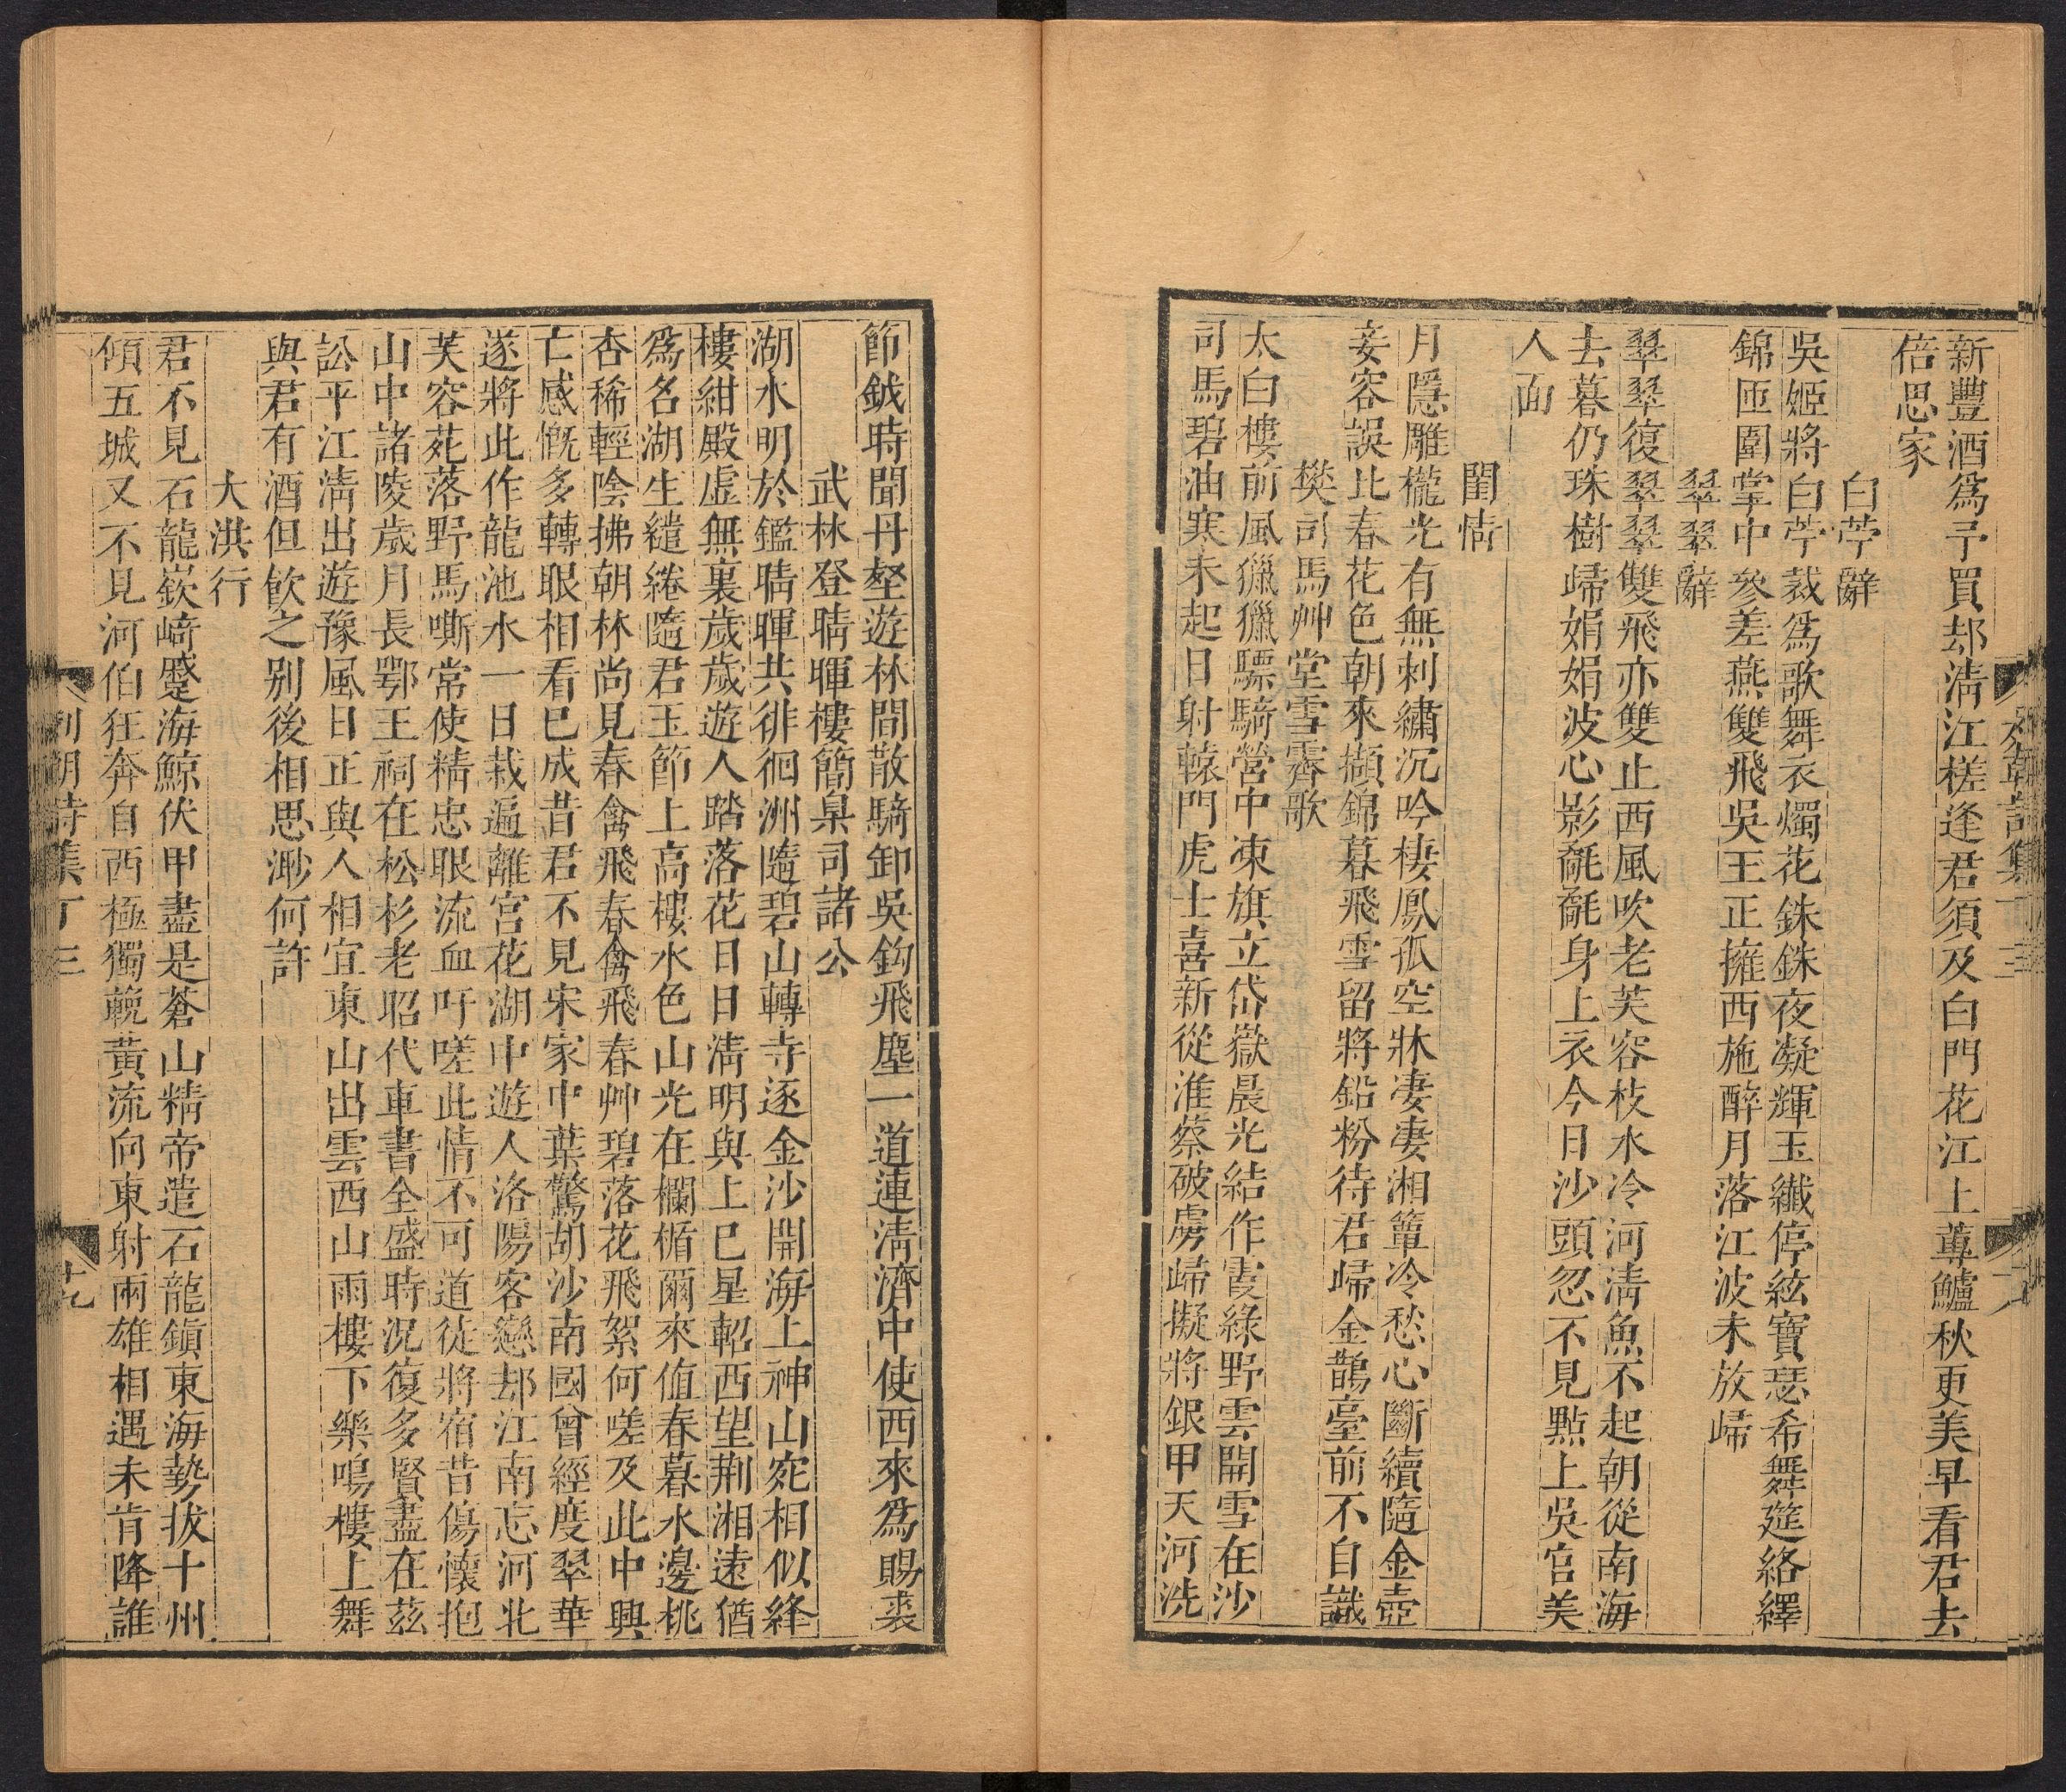 新豐酒爲予買却淸江槎逢君須及白門花江上蓴鱸秋更美早看君去
倍思家
白苧辭
吳姬將白苧裁爲歌舞衣燭花銖銖夜凝輝玉纖停絃寶瑟希舞筵絡繹
錦匝圍掌中參差燕雙飛吳王正擁西施醉月落江波未放歸
翠翠辭
翠翠復翠翠雙飛亦雙止西風吹老芙容枝水冷河淸魚不起朝從南海
去暮仍珠樹歸娟娟波心影毿毿身上衣今日沙頭忽不見點上吳宮美
人面
閨情
月隱雕櫳光有無刺繡沉吟棲鳳孤空牀凄凄湘簟冷愁心斷續隨金壺
妾容誤比春花色朝來擷錦暮飛雪留將鉛粉待君歸金鵲臺前不自識
樊司馬艸堂雪霽歌
太白樓前風獵獵驃騎營中凍旗立岱嶽晨光結作霞綠野雲開雪在沙
司馬碧油寒未起日射轅門虎士喜新從淮蔡破虜歸擬將銀甲天河洗
節鉞時聞丹壑遊林間散騎卸吳鈎飛塵一道連淸濟中使西來爲賜裘
武林登晴暉樓簡臬司諸公
湖水明於鑑晴暉共徘徊洲隨碧山轉寺逐金沙開海上神山宛相似絳
樓紺殿虛無裏歲歲遊人踏落花日日淸明與上巳星軺西望荆湘遠酋
爲名湖生繾綣隨君玉節上高樓水色山光在欄楯爾來値春暮水邊桃
杏稀輕陰拂朝林尚見春禽飛春禽飛春艸碧落花飛絮何嗟及此中興
亡感慨多轉眼相看已成昔君不見宋家中葉驚胡沙南國曾經度翠華
遂將此作龍池水一日栽遍離宮花湖中遊人洛陽客戀却江南忘河北
芙容苑落野馬嘶常使精忠眼流血吁嗟此情不可道徒將宿昔傷懷抱
山中諸陵歲月長鄂王祠在松杉老昭代車書全盛時況復多賢盡在茲
訟平江淸出遊豫風日正與人相宜東山出雲西山雨樓下樂鳴樓上舞
與君有酒但飮之別後相思渺何許
大洪行
君不見石龍嶔崎蹙海鯨伏甲盡是蒼山精帝遣石龍鎭東海勢拔十州
傾五城又不見河伯狂奔自西極獨輓黃流向東射兩雄相遇未肯降誰
列朝詩集丁三
十九